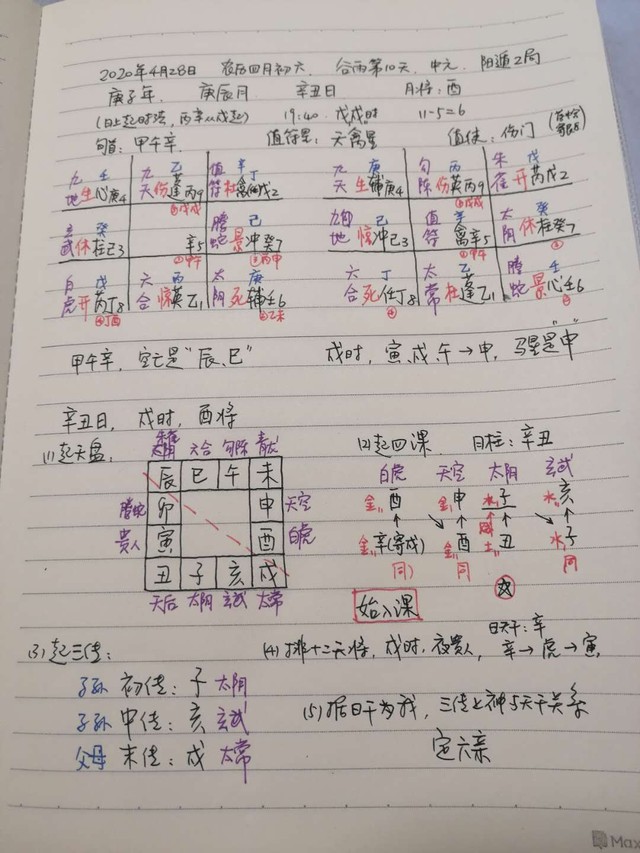 2020年4月28日 农历四月初六 谷雨第10天 中元 阳遁2局
庚子年 庚辰月 辛丑日 月将:酉
(日上起时法,丙辛从戊起) 19:40 戊戌时 11-5=6
旬首:甲午辛 值符星:天禽星 值使:伤门
九 壬 九 乙 值 辛丁 九 庚 勾 丙 朱 戊
地生心庚4 天伤蓬丙9 符杜禽芮戊2 天生辅庚4 陈伤英丙9 雀开芮戊2
玄 癸 螣 己 九 己 值 辛 太 癸
武休任己3 辛5 蛇景冲癸7 地惊冲己3 符禽辛5 阴休柱癸7
白 戊 六 丙 太 庚 六 丁 太 乙 螣 壬
虎开芮丁8 合惊英乙1 阴死辅壬6 合死任丁8 常杜蓬乙1 蛇景心壬6
甲午辛,空亡是“辰、巳” 戌时,寅、戌、午→申,马星是“申”
辛丑日,戌时,酉将
(1)起天盘, (2)起四课 日柱:辛丑
六合 勾陈 青龙 白虎 天空 太阳 玄武
辰 巳 午 未 金 酉 金 申 水 子 水 亥
螣蛇 卯 申 天空
贵人 寅 酉 白虎 金 辛(寄戌) 金 酉 土 丑 水 子
丑 子 亥 戌 同 同 同
天后 太阴 玄武 太常 始入课
(3)起三传: (4)排十二天将,戌时,夜贵人, 日天干:辛
辛→虎→寅
子孙 初传:子 太阴
子孙 中传:亥 玄武 (5)据日干为我,三传上神与天干关系
父母 末传:戌 太常 定六亲
Max